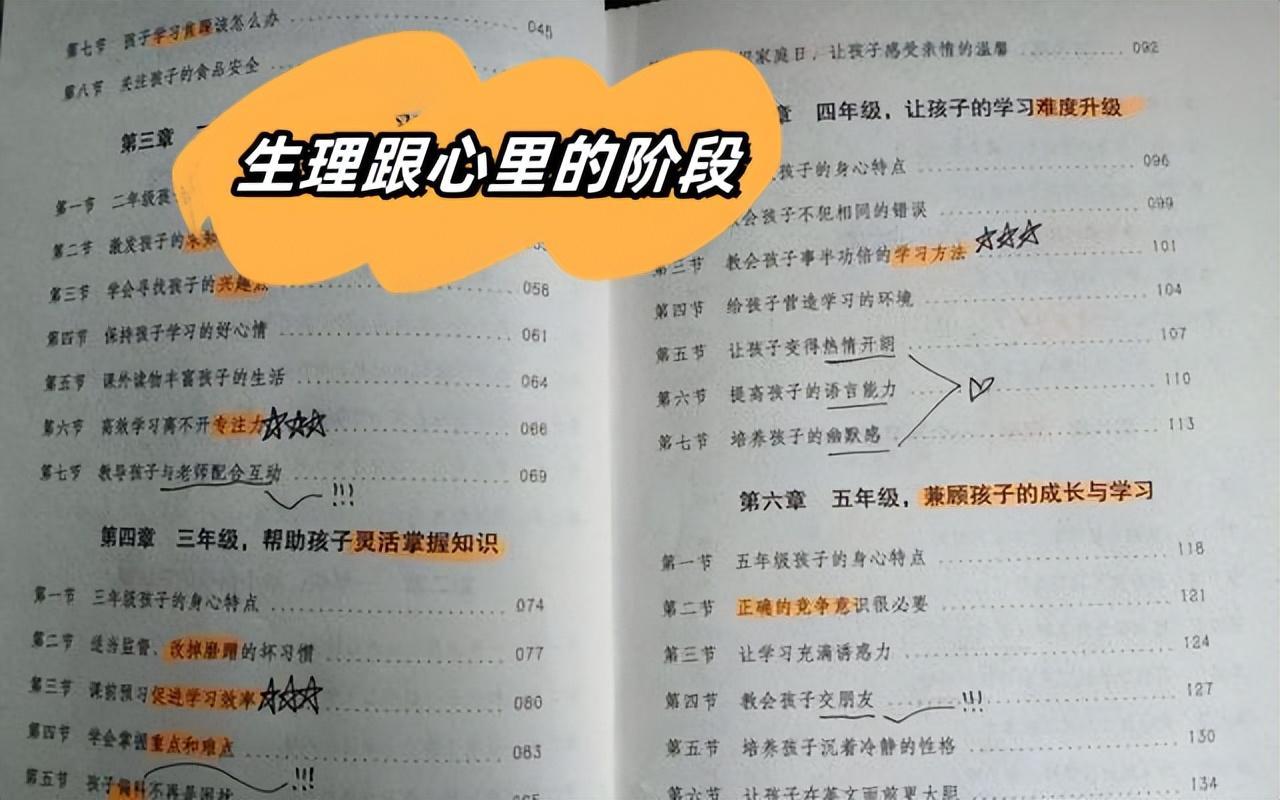 第七节 孩子学习焦躁该怎么办 045
第八节 关注孩子的食品安全
第三章
生理跟心里的阶段
第一节 二年级孩
第二节 激发孩子的求知
第三节 学会寻找孩子的兴趣点 058
第四节 保持孩子学习的好心情 061
第五节 课外读物丰富孩子的生活 064
第六节 高效学习离不开专注力 066
第七节 教导孩子与老师配合互动 069
!!!
第四章 三年级，帮助孩子灵活掌握知识
第一节 三年级孩子的身心特点 074
第二节 适当监督、改掉磨蹭的坏习惯 077
第三节 课前预习促进学习效率 080
第四节 学会掌握重点和难点 083
第五节 孩子偏科不再是困扰 !!!
家庭日，让孩子感受亲情的温馨 092
章 四年级，让孩子的学习难度升级
孩子的身心特点 096
教会孩子不犯相同的错误 099
第三节 教会孩子事半功倍的学习方法 101
第四节 给孩子营造学习的环境 104
第五节 让孩子变得热情开朗 107
第六节 提高孩子的语言能力 110
第七节 培养孩子的幽默感 113
第六章 五年级，兼顾孩子的成长与学习
第一节 五年级孩子的身心特点 118
第二节 正确的竞争意识很必要 121
第三节 让学习充满诱惑力 124
第四节 教会孩子交朋友 !!! 127
第五节 培养孩子沉着冷静的性格 130
第六节 让孩子在英文面前更大胆 134